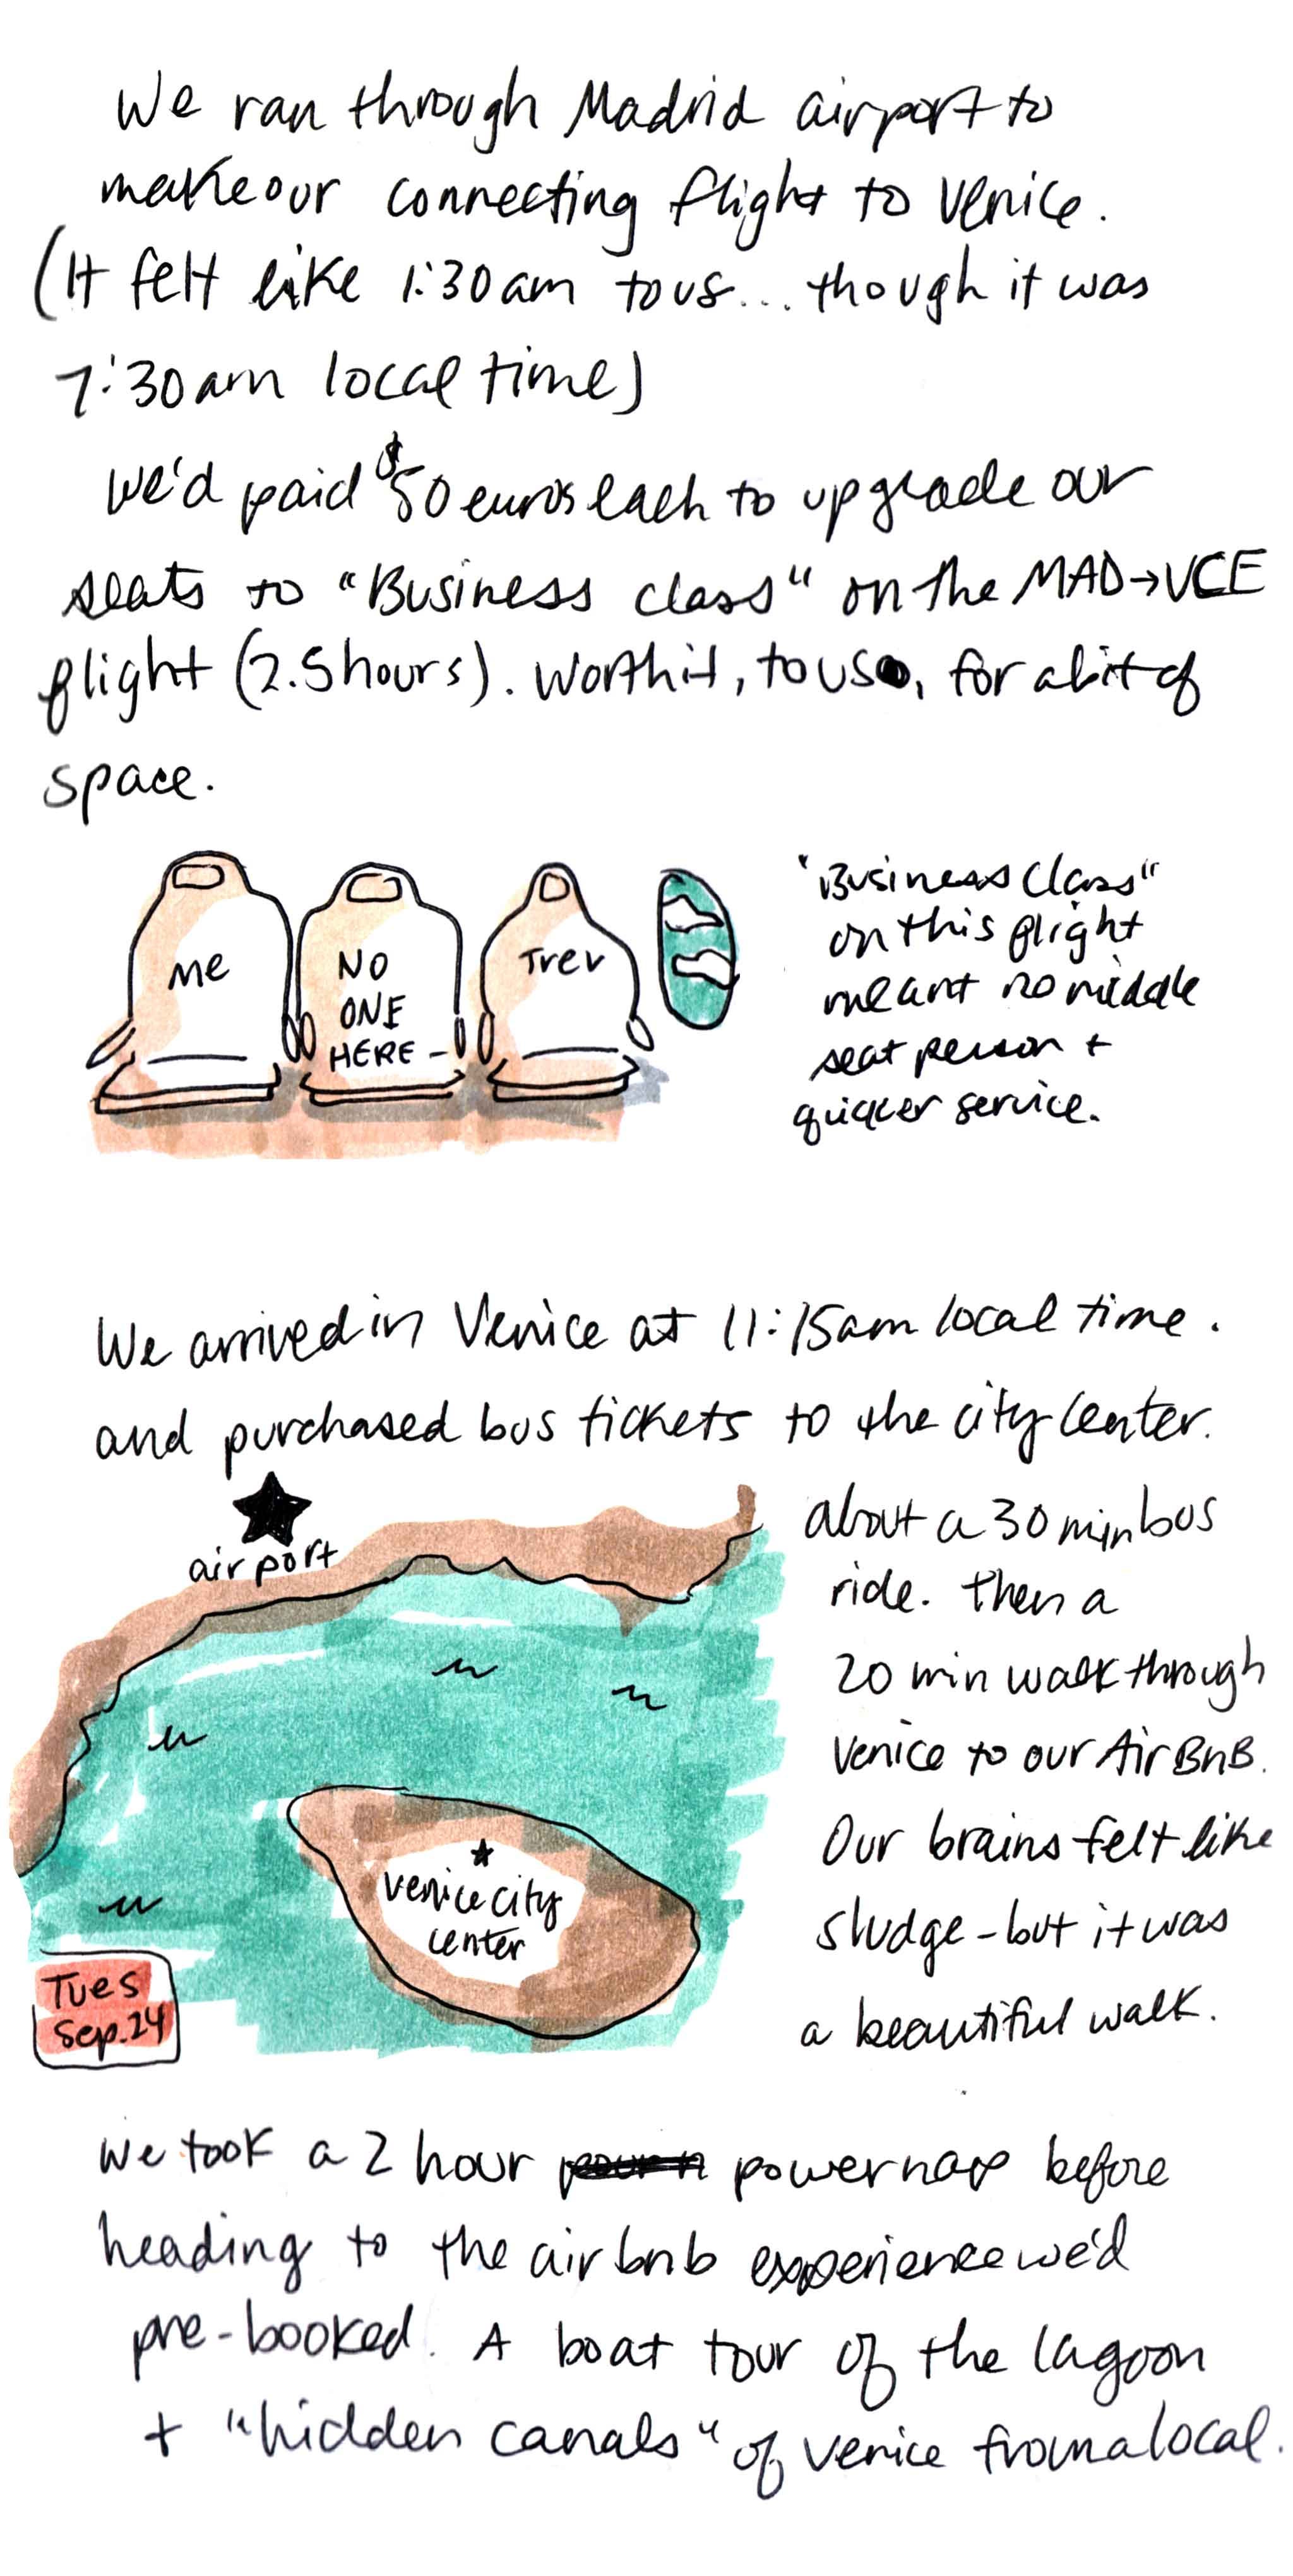 We ran through Madrid airport to
make our connecting flight to Venice.
(It felt like 1:30am to us... though it was
7:30am local time)
We'd paid $50 euros each to upgrade our
seats to "Business class" on the MAD→VCE
flight (2.5 hours). Worth it, to us, for a bit of
space.
Me
NO
ONE
HERE -
Trev
"Business Class"
on this flight
meant no middle
seat person +
quicker service.
We arrived in Venice at 11:15am local time.
and purchased bus tickets to the city center.
airport
about a 30 min bus
ride. Then a
20 min walk through
Venice to our AirBnB.
Our brains felt like
sludge - but it was
a beautiful walk.
Venice city
center
Tues
Sep. 24
We took a 2 hour power nap before
heading to the airbnb experience we'd
pre-booked. A boat tour of the lagoon
+ "hidden canals" of Venice from a local.